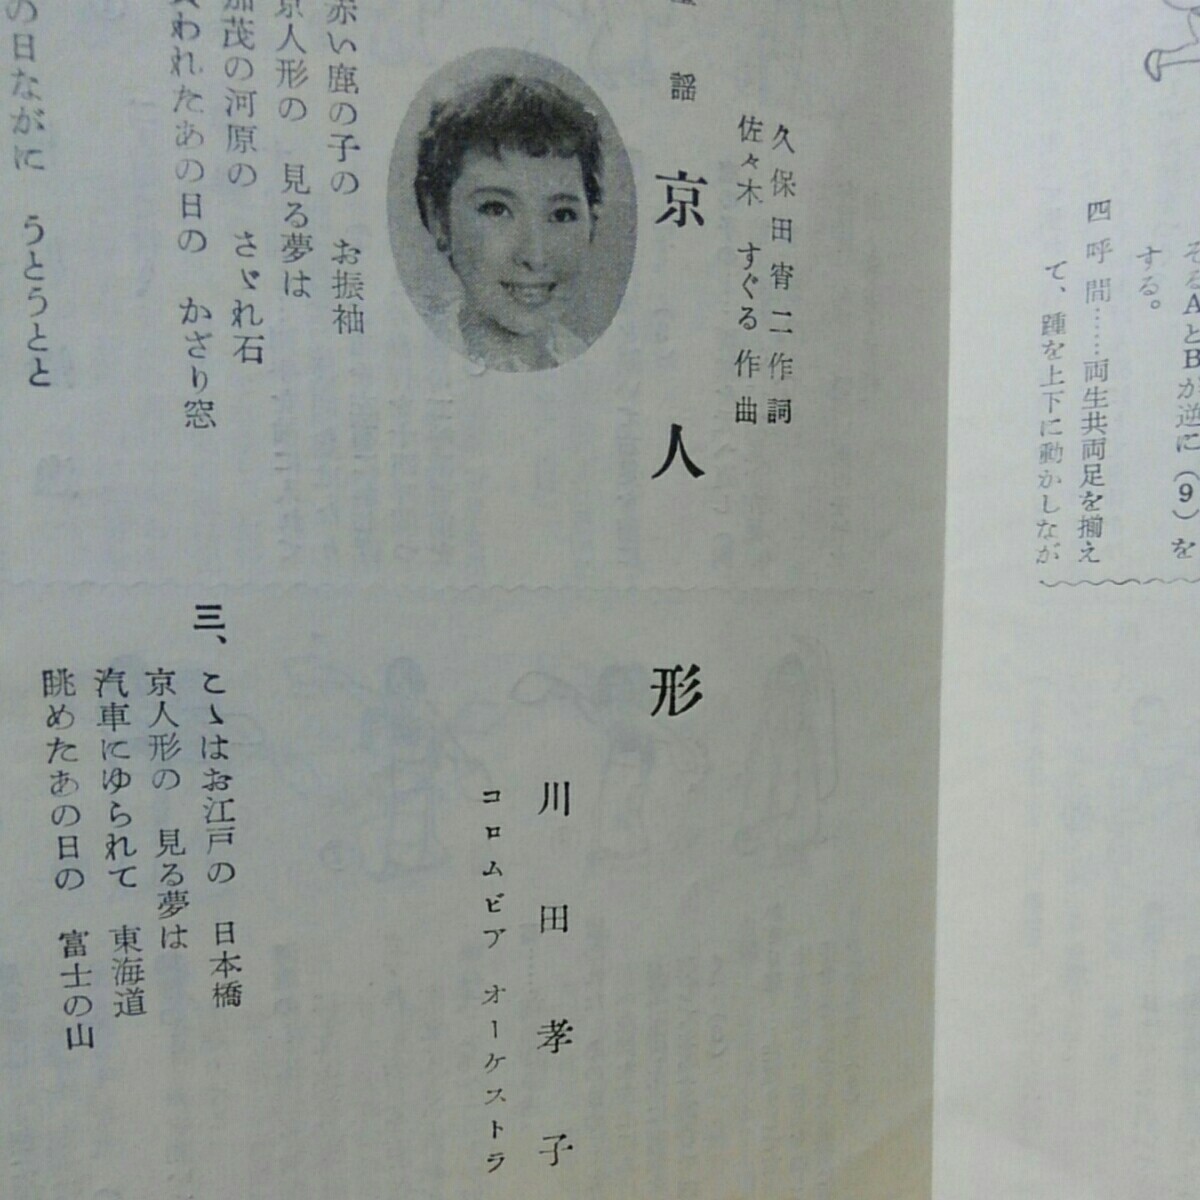 そるAとBが逆に(9)を
する。
四呼間……両生共両足を揃え
て、踵を上下に動かしなが
久保田宵二作詞
佐々木すぐる作曲
謡 京人形
川田孝子
コロムビア オーケストラ
赤い鹿の子の お振袖
京人形の 見る夢は
加茂の河原の さゞれ石
われたあの日の かざり窓
の日ながに うとうとと
三、こゝはお江戸の 日本橋
京人形の 見る夢は
汽車にゆられて 東海道
眺めたあの日の 富士の山